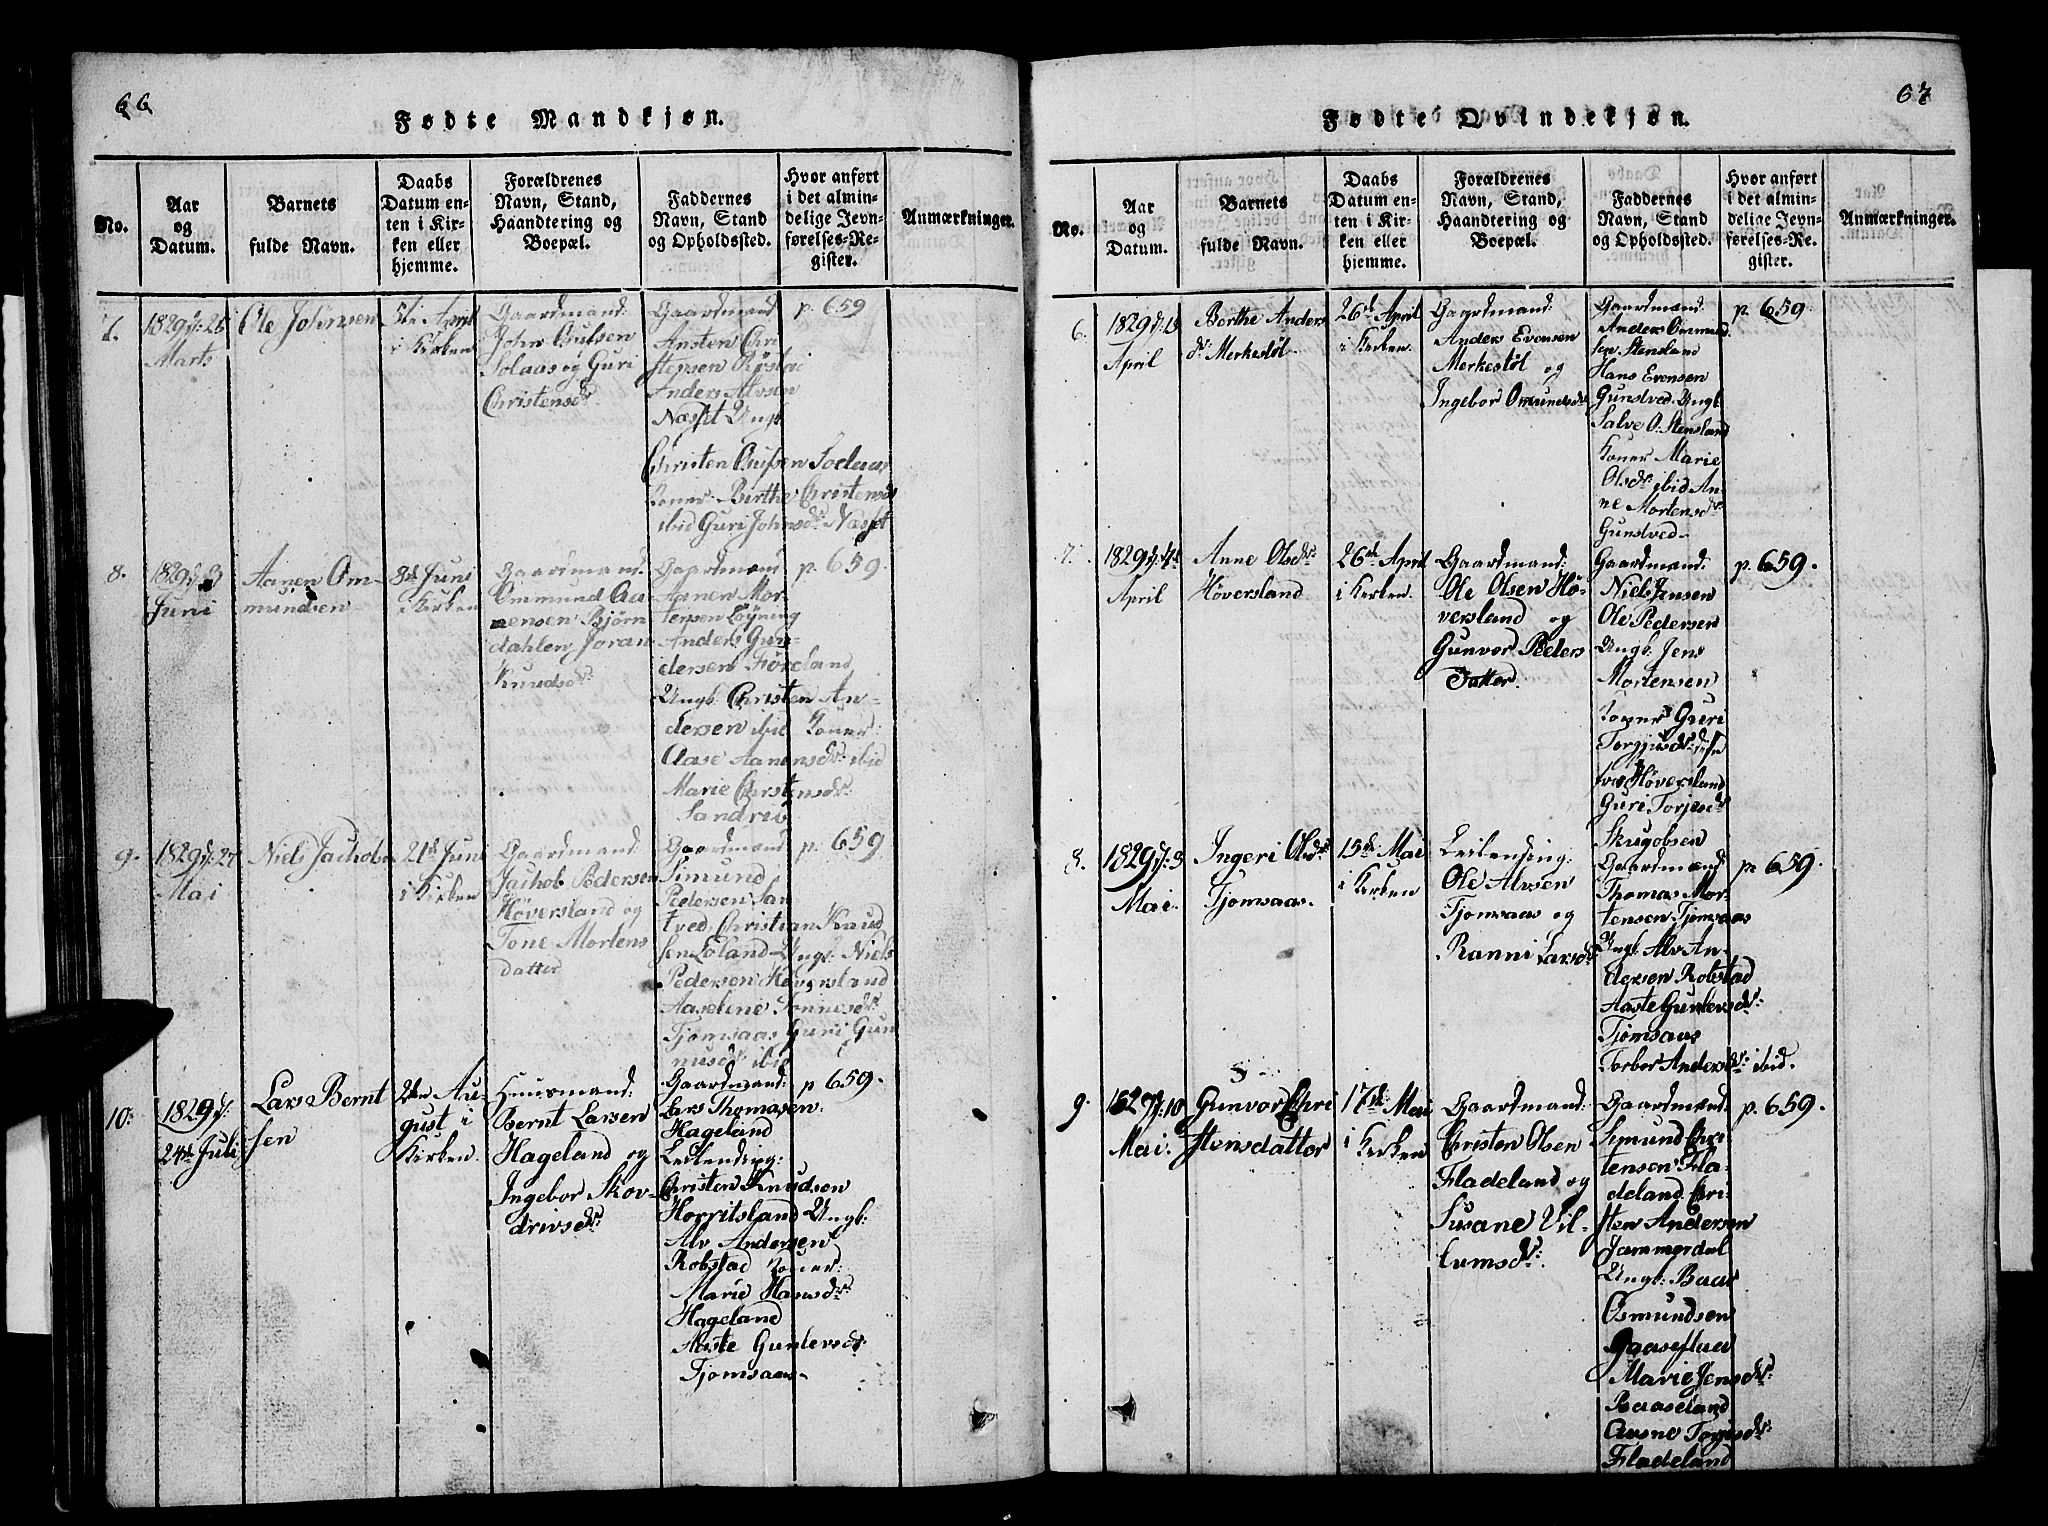 66
Fødte Mandkjøn.
No.
Aar
og
Datum.
Barnets
fulde Navn.
Daabs
Datum en-
ten i Kir-
ken eller
hjemme.
Forældrenes
Navn, Stand,
Haandtering og
Boepæl.
Faddernes
Navn, Stand
og Opholdssted.
Hvor anført
i det almin-
delige Jevn-
førelses-Re-
gister.
Anmærkninger.
7.
1829 d: 26
Marts
Ole Johnsen
5te April
i Kirken
Gaardmand:
John
Solaas og Guri
Christensdr.
Gaardmand
Ansten Chri
stensen
Anders Alvsen
Næsset Ungk
Christen
Koner: Berthe Christensdr
ibid Guri Johnsdr. Næsset
p. 659
8.
1829 d: 3
Juni
Aanen Om-
mundsen
8de Juni
i Kirken
Gaardmand.
Ommund Aa-
nensen Bjørn
dahlen Joran
Knudsdr.
Gaardmand
Aanen Mor-
tensen Løyning
Anders Gun-
dersen Føreland
Ungk: Christen An-
dersen ibid Koner:
Aase Aanensdr: ibid
Marie Christensdr:
Sandrib
p. 659.
9.
1829 d: 27
Mai
Niels Jachobsen
21de Juni
i Kirken
Gaardmand:
Jachob Pedersen
Høversland og
Tone Mortens
datter
Gaardmand
Simund
Pedersen San
tved, Christian Knud
sen Loland Ungk: Niels
Pedersen Høversland
Aaseline Tønnesdr:
Tjomsaas Guri Gun
nusdr: ibid
p. 659
10:
1829 d:
24de Juli
Lars Bernt
sen
2den Au-
gust i
Kirken.
Huusmand:
Bernt Larsen
Hageland og
Ingebor Skov-
drivsdr:
Gaardmand:
Lars Thomasen:
Hageland
Leilending:
Christen Knudsen
Horritsland Ungk:
Alv Andersen
Robstad Koner:
Marie Hansdr:
Hageland
Aaste Gunlevsdr:
Tjomsaas.
p 659.
67
Fødte Qvindekjøn.
No.
Aar
og
Datum.
Barnets
fulde Navn.
Daabs
Datum en-
ten i Kir-
ken eller
hjemme.
Forældrenes
Navn, Stand,
Haandtering og
Boepæl.
Faddernes
Navn, Stand
og Opholdssted.
Hvor anført
i det almin-
delige Jevn-
førelses-Re-
gister.
Anmærkninger.
6.
1829 d:
April
Berthe Anders
dr. Merkestøl.
26de April
i Kirken.
Gaardmand:
Anders Evensen
Merkestøl og
Ingebor Omundsdr
Gaardmand:
Anders Ommund
sen Stensland
Hans Evensen
Gunstved. Ungk
Salve O: Stensland
Koner Marie
Olsdr: ibid An-
ne Mortensdr
Gunstved.
p. 659.
7.
1829 d:
April
Anne Olsdr:
Høversland
26de April
i Kirken.
Gaardmand:
Ole Olsen Hø-
versland og
Gunvor Peders
Datter.
Gaardmand:
Niels Jensen
Ole Pedersen
Ungk. Jens
Mortensen
Koner Guri
Torgjusdr:
fra Høversland
Guri Torjesdr
p. 659.
8.
1829 d: 3
Mai.
Ingeri Olsdr:
Tjomsaas.
15de Mai
i Kirken
Leilending:
Ole Alvsen
Tjomsaas og
Ranni Larsdr
Gaardmænd:
Thomas Mor-
tensen Tjomsaas
Ungk: Alv An-
dersen Robstad
Aaste Gunlevsdr:
Tjomsaas
Torbor Andersdr: ibid.
p. 659.
9.
1829 d: 10
Mai.
Gunvor Chri
stensdatter
17de Mai
i Kirken
Gaardmand:
Christen Olsen
Fladeland og
Susane Vil-
lumsdr:
Gaardmænd:
Simund Chri
tensen Fla-
deland. Chri-
sten Andersen
Jammerdal
Ungk: Baar
Osmundsen
Gaaseflaa
Marie Jensdr:
Baaseland
Torjusdr:
Fladeland
p. 659.